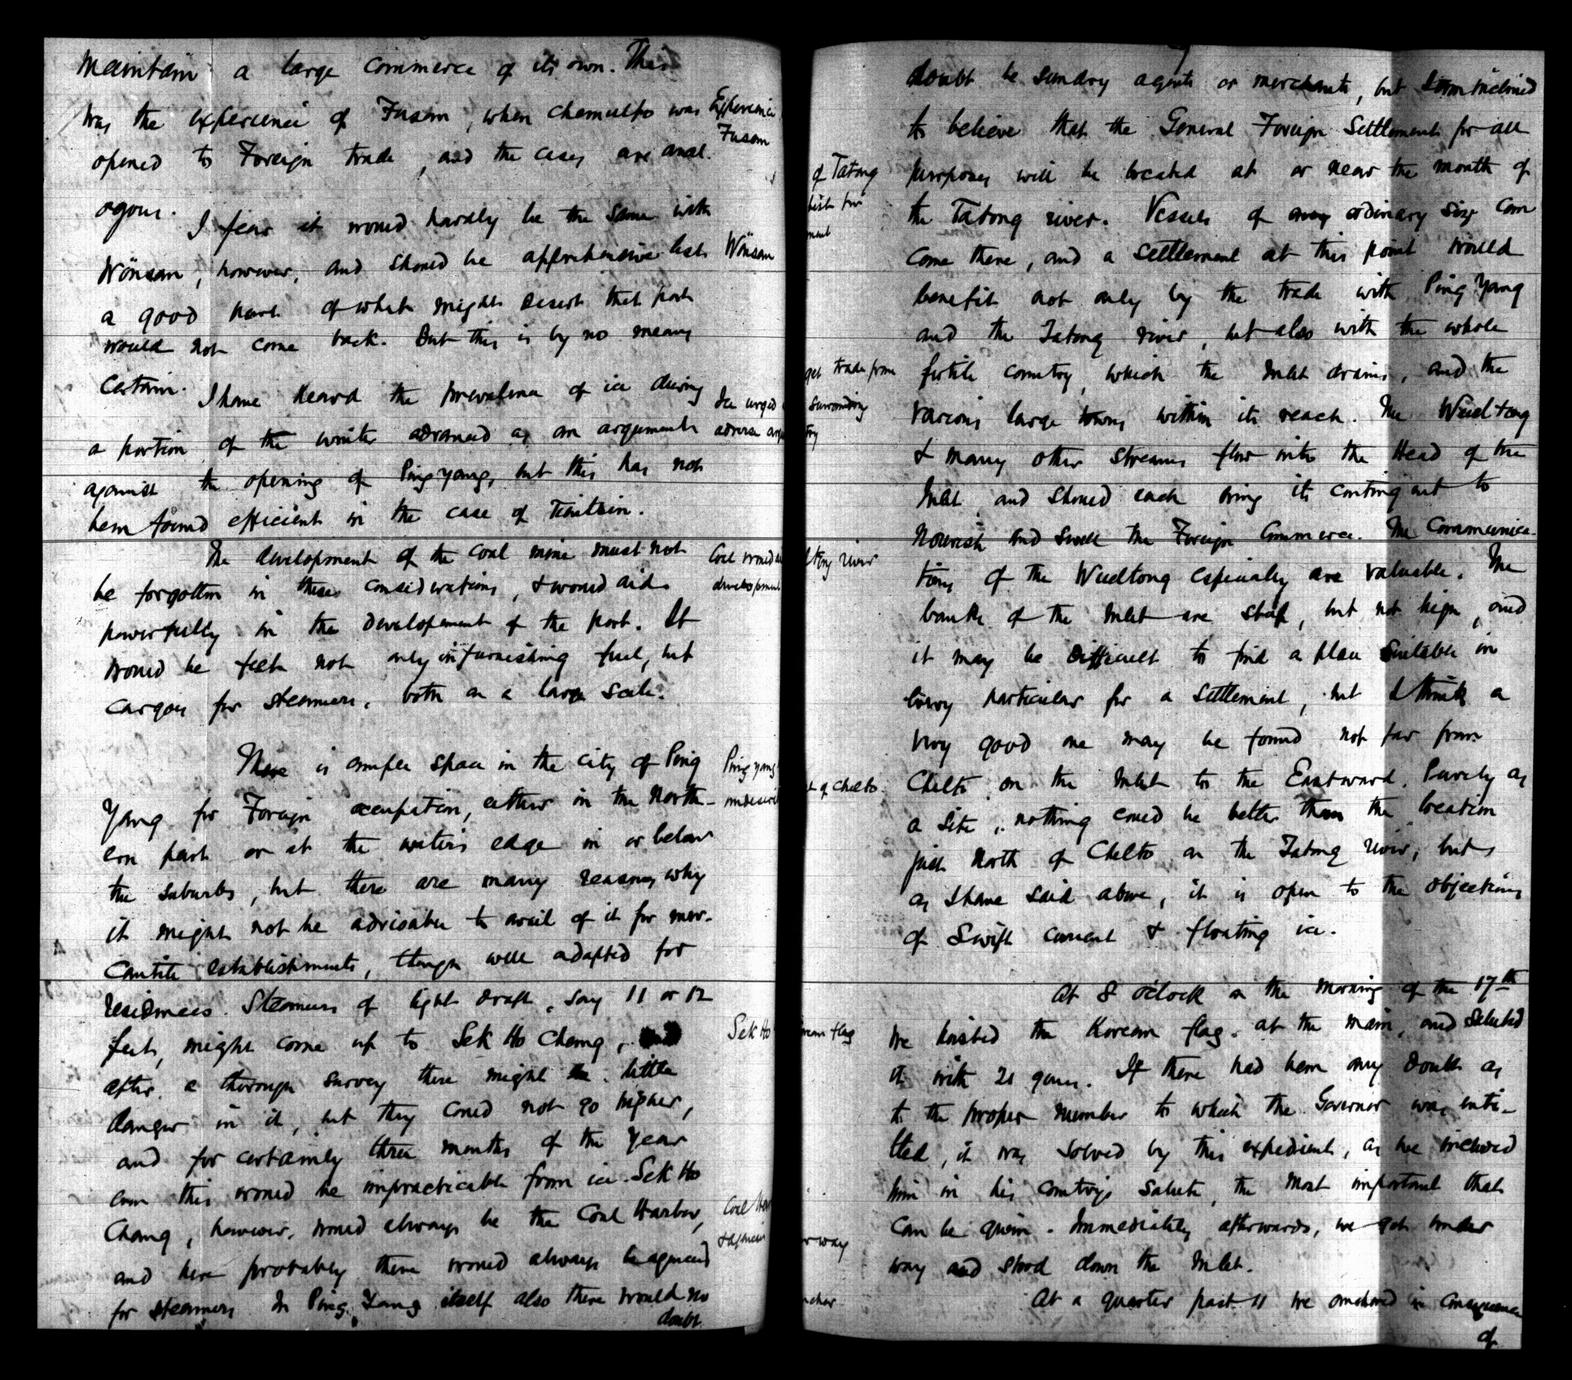 Maintain a large commerce of its own. This
was the experience of Fusan, when Chemulpo was
opened to Foreign trade, and the cases are anal.
ogous.
I fear it would hardly be the same with
Wönsan, however, and should be apprehensive lest
a good part of what might desert that port
would not come back. But this is by no means
certain.
I have heard the prevalence of ice during
a portion of the winter advanced as an argument
against the opening of Ping yang, but this has not
been found efficient in the case of Tientsin.
The development of the coal mine must not
be forgotten in these considerations, & would aid
powerfully in the developement of the port. It
would be felt not only in furnishing fuel, but
cargoes for steamers, both on a large scale.
There is ample space in the city of Ping
Yang for Foreign occupation, either in the North-
ern part or at the water's edge in or below
the suburbs, but there are many reasons why
it might not be advisable to avail of it for mer-
cantile establishments, though well adapted for
residences. Steamers of light draft, say 11 or 12
feet, might come up to Sek Ho Chang,
after a thorough survey there might be little
danger in it, but they could not go higher,
and for certainly three months of the year
even this would be impracticable from ice. Sek Ho
Chang, however, would always be the Coal Harbor,
and here probably there would always be agencies
for steamers. In Ping Yang itself also there would no
doubt
Experience
Fusan
Wönsan
Ice urged
adverse
Coal would
development
Ping yang
Sek Ho
Coal
of Tatong
get trade from
surrounding
river
of Chelto
flag
way
doubt be sundry agents or merchants, but I am inclined
to believe that the General Foreign Settlement for all
purposes will be located at or near the mouth of
the Tatong river. Vessels of any ordinary size can
come there, and a settlement at this point would
benefit not only by the trade with Ping Yang
and the Tatong river, but also with the whole
fertile country, which the Inlet drains, and the
various large towns within its reach. The Wueltong
& many other streams flow into the Head of the
Inlet, and should each bring its contingent to
nourish and swell the Foreign Commerce. The Communica-
tions of the Wueltong especially are valuable. The
banks of the Inlet are steep, but not high, and
it may be difficult to find a place suitable in
every particular for a settlement, but I think a
very good one may be found not far from
Chelto on the Inlet to the Eastward. Purely as
a site, nothing could be better than the location
just North of Chelto on the Tatong river, but,
as I have said above, it is open to the objections
of swift current & floating ice.
At 8 o'clock on the morning of the 17th
we hoisted the Korean flag at the main, and saluted
it with 21 guns. If there had been any doubt as
to the proper number to which the Governor was enti-
tled, it was solved by this expedient, as we included
him in his Country's Salute, the most important that
can be given. Immediately afterwards, we got under
way and stood down the Inlet.
At a quarter past 11 we anchored in consequence
of